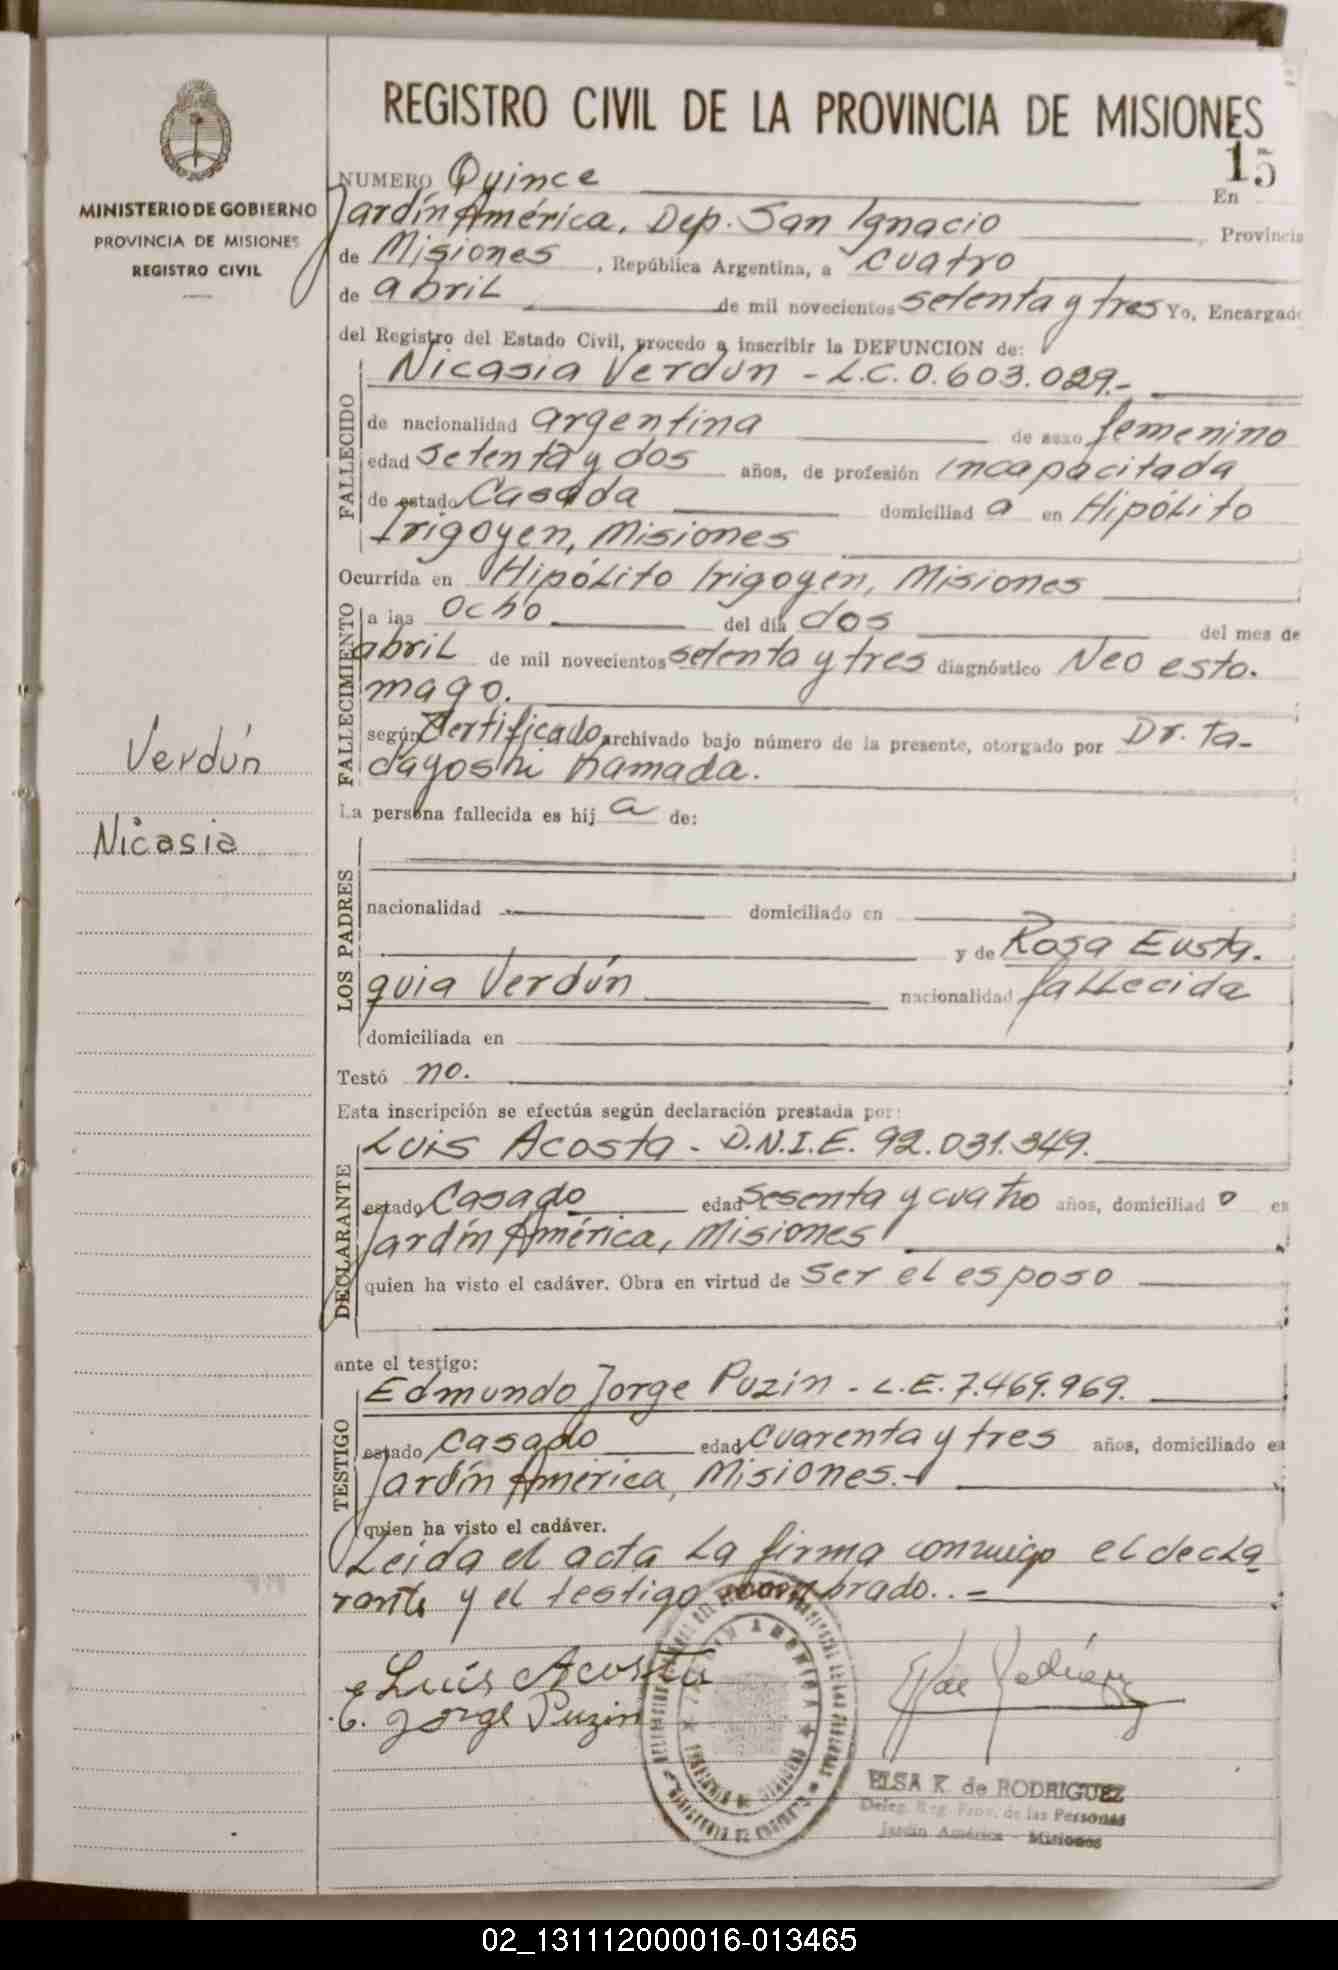 REGISTRO CIVIL DE LA PROVINCIA DE MISIONES
15
MINISTERIO DE GOBIERNO
PROVINCIA DE MISIONES
REGISTRO CIVIL
Verdún
Nicasia
NUMERO Quince En
Jardín América, Dep. San Ignacio, Provincia
de Misiones, República Argentina, a cuatro
de abril de mil novecientos setenta y tres Yo, Encargado
del Registro del Estado Civil, procedo a inscribir la DEFUNCION de:
FALLECIDO
Nicasia Verdún - L.C. 0.603.029.-
de nacionalidad argentina de sexo femenino
edad setenta y dos años, de profesión incapacitada
de estado Casada domiciliad a en Hipólito
Irigoyen, Misiones
FALLECIMIENTO
Ocurrida en Hipólito Irigoyen, Misiones
a las ocho del día dos del mes de
abril de mil novecientos setenta y tres diagnóstico Neo esto-
mago.
según Certificado archivado bajo número de la presente, otorgado por Dr. Ta-
dayoshi Kamada.
La persona fallecida es hij a de:
LOS PADRES
nacionalidad domiciliado en
y de Rosa Eusta-
quia Verdún nacionalidad fallecida
domiciliada en
Testó no.
Esta inscripción se efectúa según declaración prestada por:
DECLARANTE
Luis Acosta - D.N.I.E. 92.031.349.
estado Casado edad sesenta y cuatro años, domiciliad o en
Jardín América, Misiones
quien ha visto el cadáver. Obra en virtud de ser el esposo
ante el testigo:
TESTIGO
Edmundo Jorge Puzin - L.E. 7.469.969.
estado Casado edad cuarenta y tres años, domiciliado en
Jardín América, Misiones.-
quien ha visto el cadáver.
Leida el acta la firma conmigo el decla
rante y el testigo nombrado..-
Luis Acosta
E. Jorge Puzin
ELSA K. de RODRIGUEZ
Deleg. Reg. Prov. de las Personas
Jardín América - Misiones
02_131112000016-013465